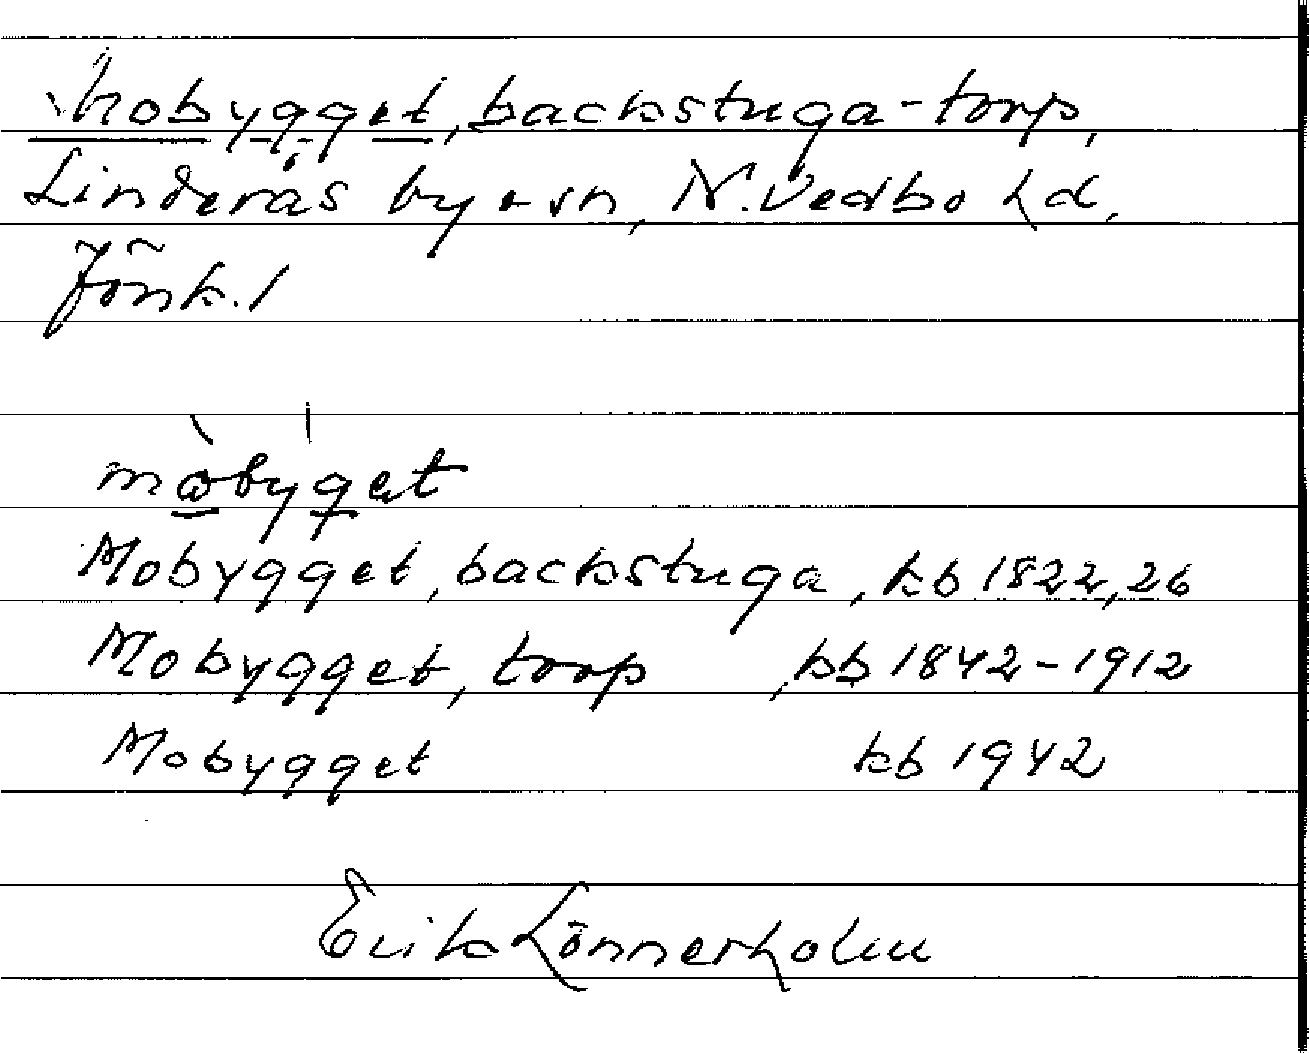 Mobygget, backstuga-torp,
Linderås by o sn, N. Vedbo hd,
Jönk. l
Mobygget, backstuga, kb 1822, 26
Mobygget, torp, kb 1842-1912
Mobygget kb 1942
Erik Lönnerholm